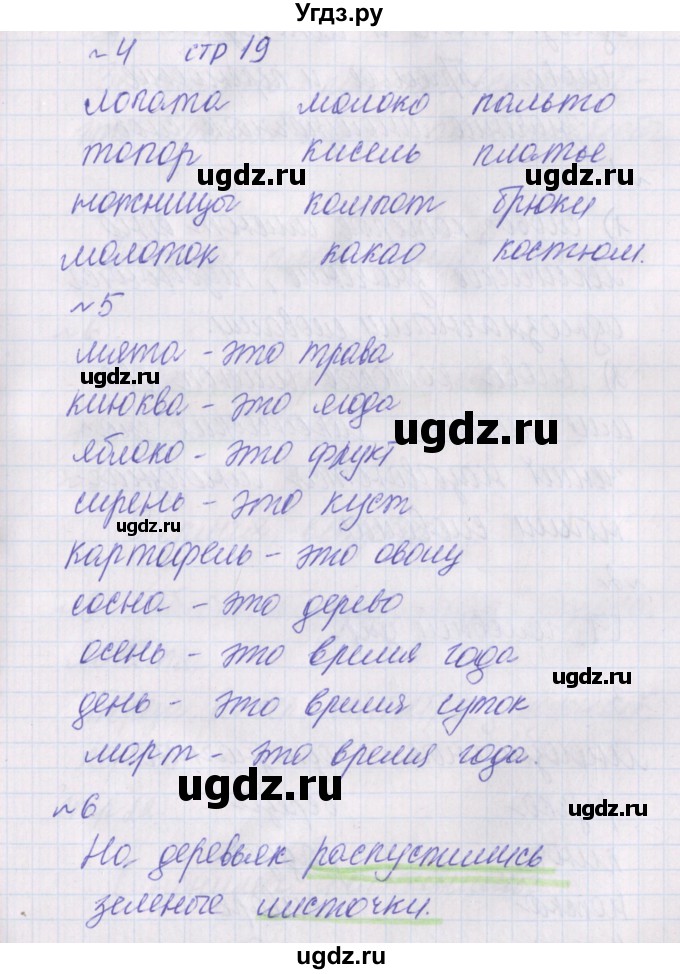 Угдз.ру
№4 стр 19
лопата молоко пальто
топор кисель платье.
ножницы компот брюки
молоток какао костюм.
ugdz.ru ugdz.ru
№5
мята - это трава
ugdz.ru
клюква - это ягода
ugdz.ru
яблоко - это фрукт
сирень - это куст
ugdz.ru
картофель - это овощ
сосна - это дерево
ugdz.ru
осень - это время года
день - это время суток
март - это время года
ugdz.ru ugdz.ru
№6
На деревьях распустились
зеленые листочки.
ugdz.ru